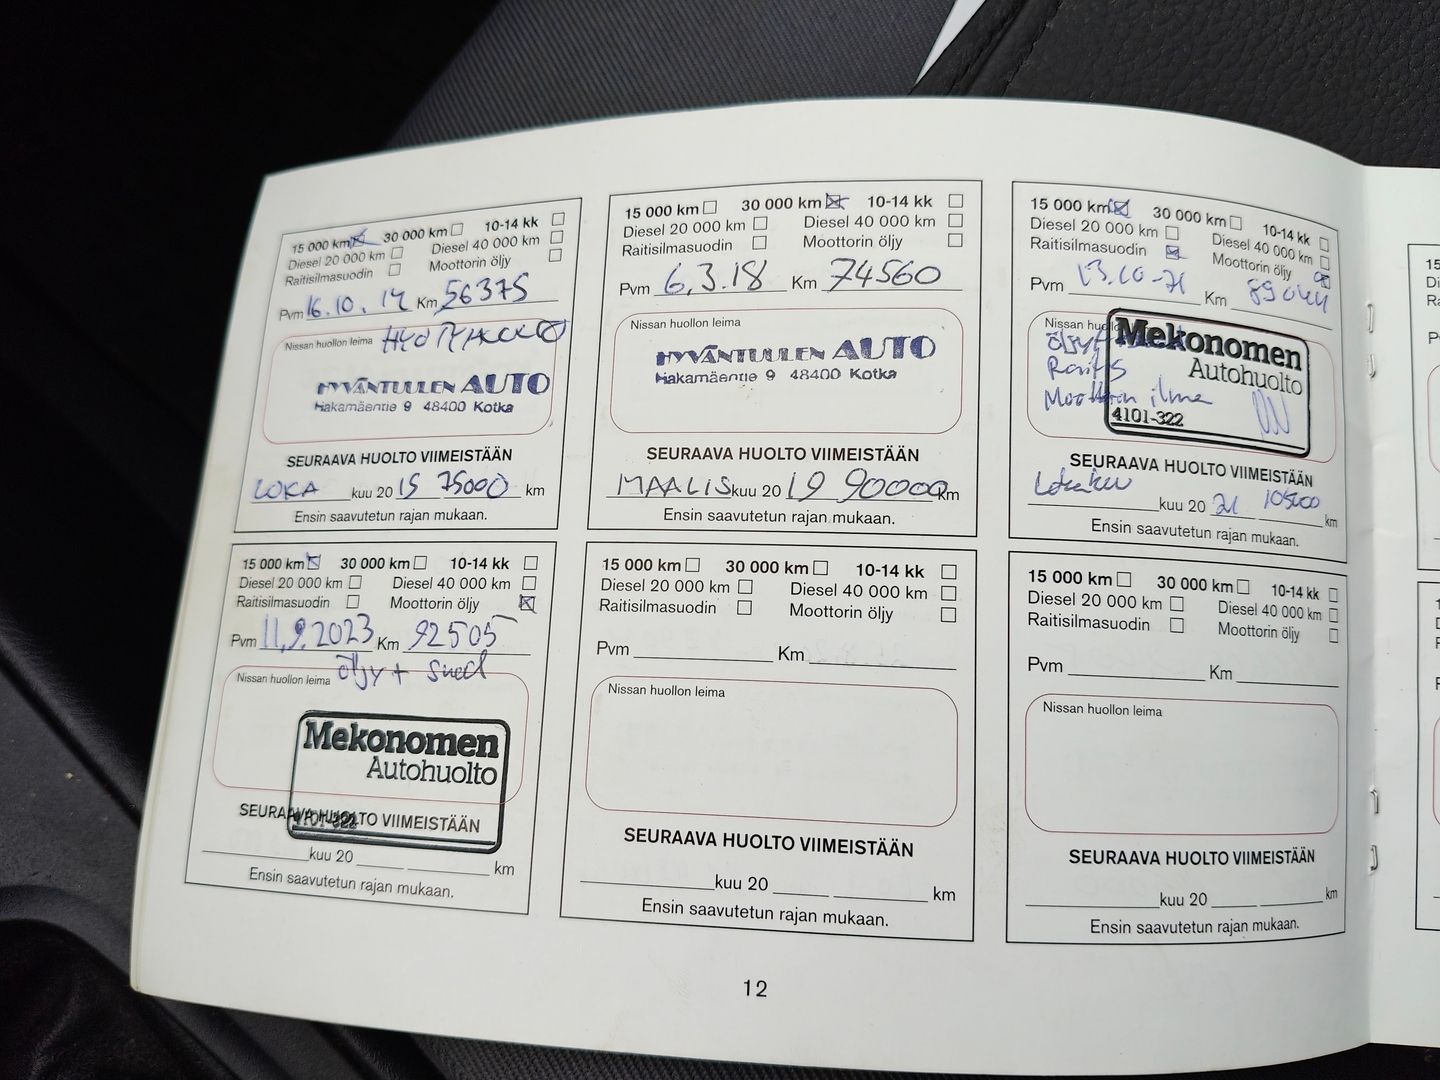 15 000 km 30 000 km 10-14 kk
Diesel 20 000 km Diesel 40 000 km
Raitisilmasuodin Moottorin öljy
Pvm 16.10.14 Km 56375
Nissan huollon leima
HYVÄNTUULEN AUTO
Hakamäentie 9 48400 Kotka
SEURAAVA HUOLTO VIIMEISTÄÄN
LOKA kuu 20 15 75000 km
Ensin saavutetun rajan mukaan.
15 000 km 30 000 km 10-14 kk
Diesel 20 000 km Diesel 40 000 km
Raitisilmasuodin Moottorin öljy
Pvm 6.3.18 Km 74560
Nissan huollon leima
HYVÄNTUULEN AUTO
Hakamäentie 9 48400 Kotka
SEURAAVA HUOLTO VIIMEISTÄÄN
MAALIS kuu 20 19 90000 km
Ensin saavutetun rajan mukaan.
15 000 km 30 000 km 10-14 kk
Diesel 20 000 km Diesel 40 000 km
Raitisilmasuodin Moottorin öljy
Pvm 13.10-21 Km 89044
Nissan huollon
Mekonomen
Autohuolto
Raitis
Moottorin ilma
4101-322
SEURAAVA HUOLTO VIIMEISTÄÄN
kuu 20 21 105000 km
Ensin saavutetun rajan mukaan.
15 000 km 30 000 km 10-14 kk
Diesel 20 000 km Diesel 40 000 km
Raitisilmasuodin Moottorin öljy
Pvm 11.9.2023 Km 92505
Nissan huollon leima öljy + suod
Mekonomen
Autohuolto
4101-322
SEURAAVA HUOLTO VIIMEISTÄÄN
kuu 20 km
Ensin saavutetun rajan mukaan.
15 000 km 30 000 km 10-14 kk
Diesel 20 000 km Diesel 40 000 km
Raitisilmasuodin Moottorin öljy
Pvm Km
Nissan huollon leima
SEURAAVA HUOLTO VIIMEISTÄÄN
kuu 20 km
Ensin saavutetun rajan mukaan.
15 000 km 30 000 km 10-14 kk
Diesel 20 000 km Diesel 40 000 km
Raitisilmasuodin Moottorin öljy
Pvm Km
Nissan huollon leima
SEURAAVA HUOLTO VIIMEISTÄÄN
kuu 20 km
Ensin saavutetun rajan mukaan.
12